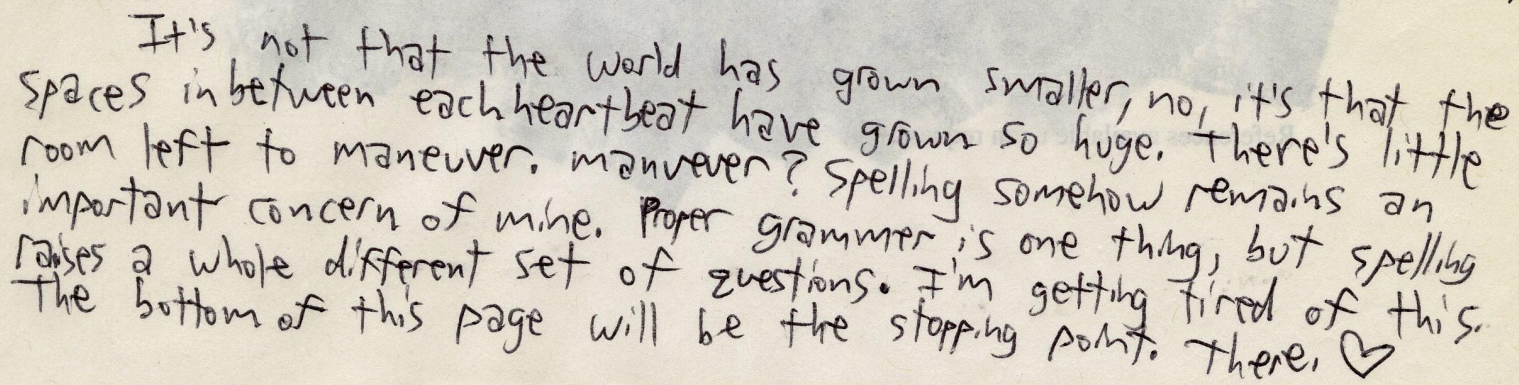 It's not that the world has grown smaller, no, it's that the
spaces inbetween each heartbeat have grown so huge. There's little
room left to maneuver. manuever? Spelling somehow remains an
important concern of mine. Proper grammer is one thing, but spelling
raises a whole different set of questions. I'm getting tired of this.
The bottom of this page will be the stopping point. There. ♡